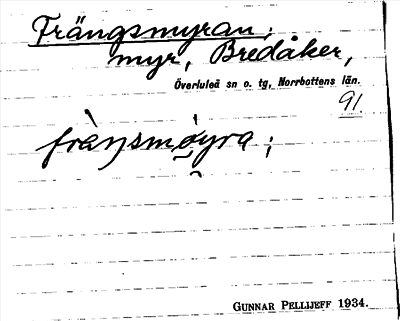 Trängsmyran;
myr, Bredåker,
Överluleå sn o. tg, Norrbottens län.
91.
fràŋsmø̀yra;
GUNNAR PELLIJEFF 1934.